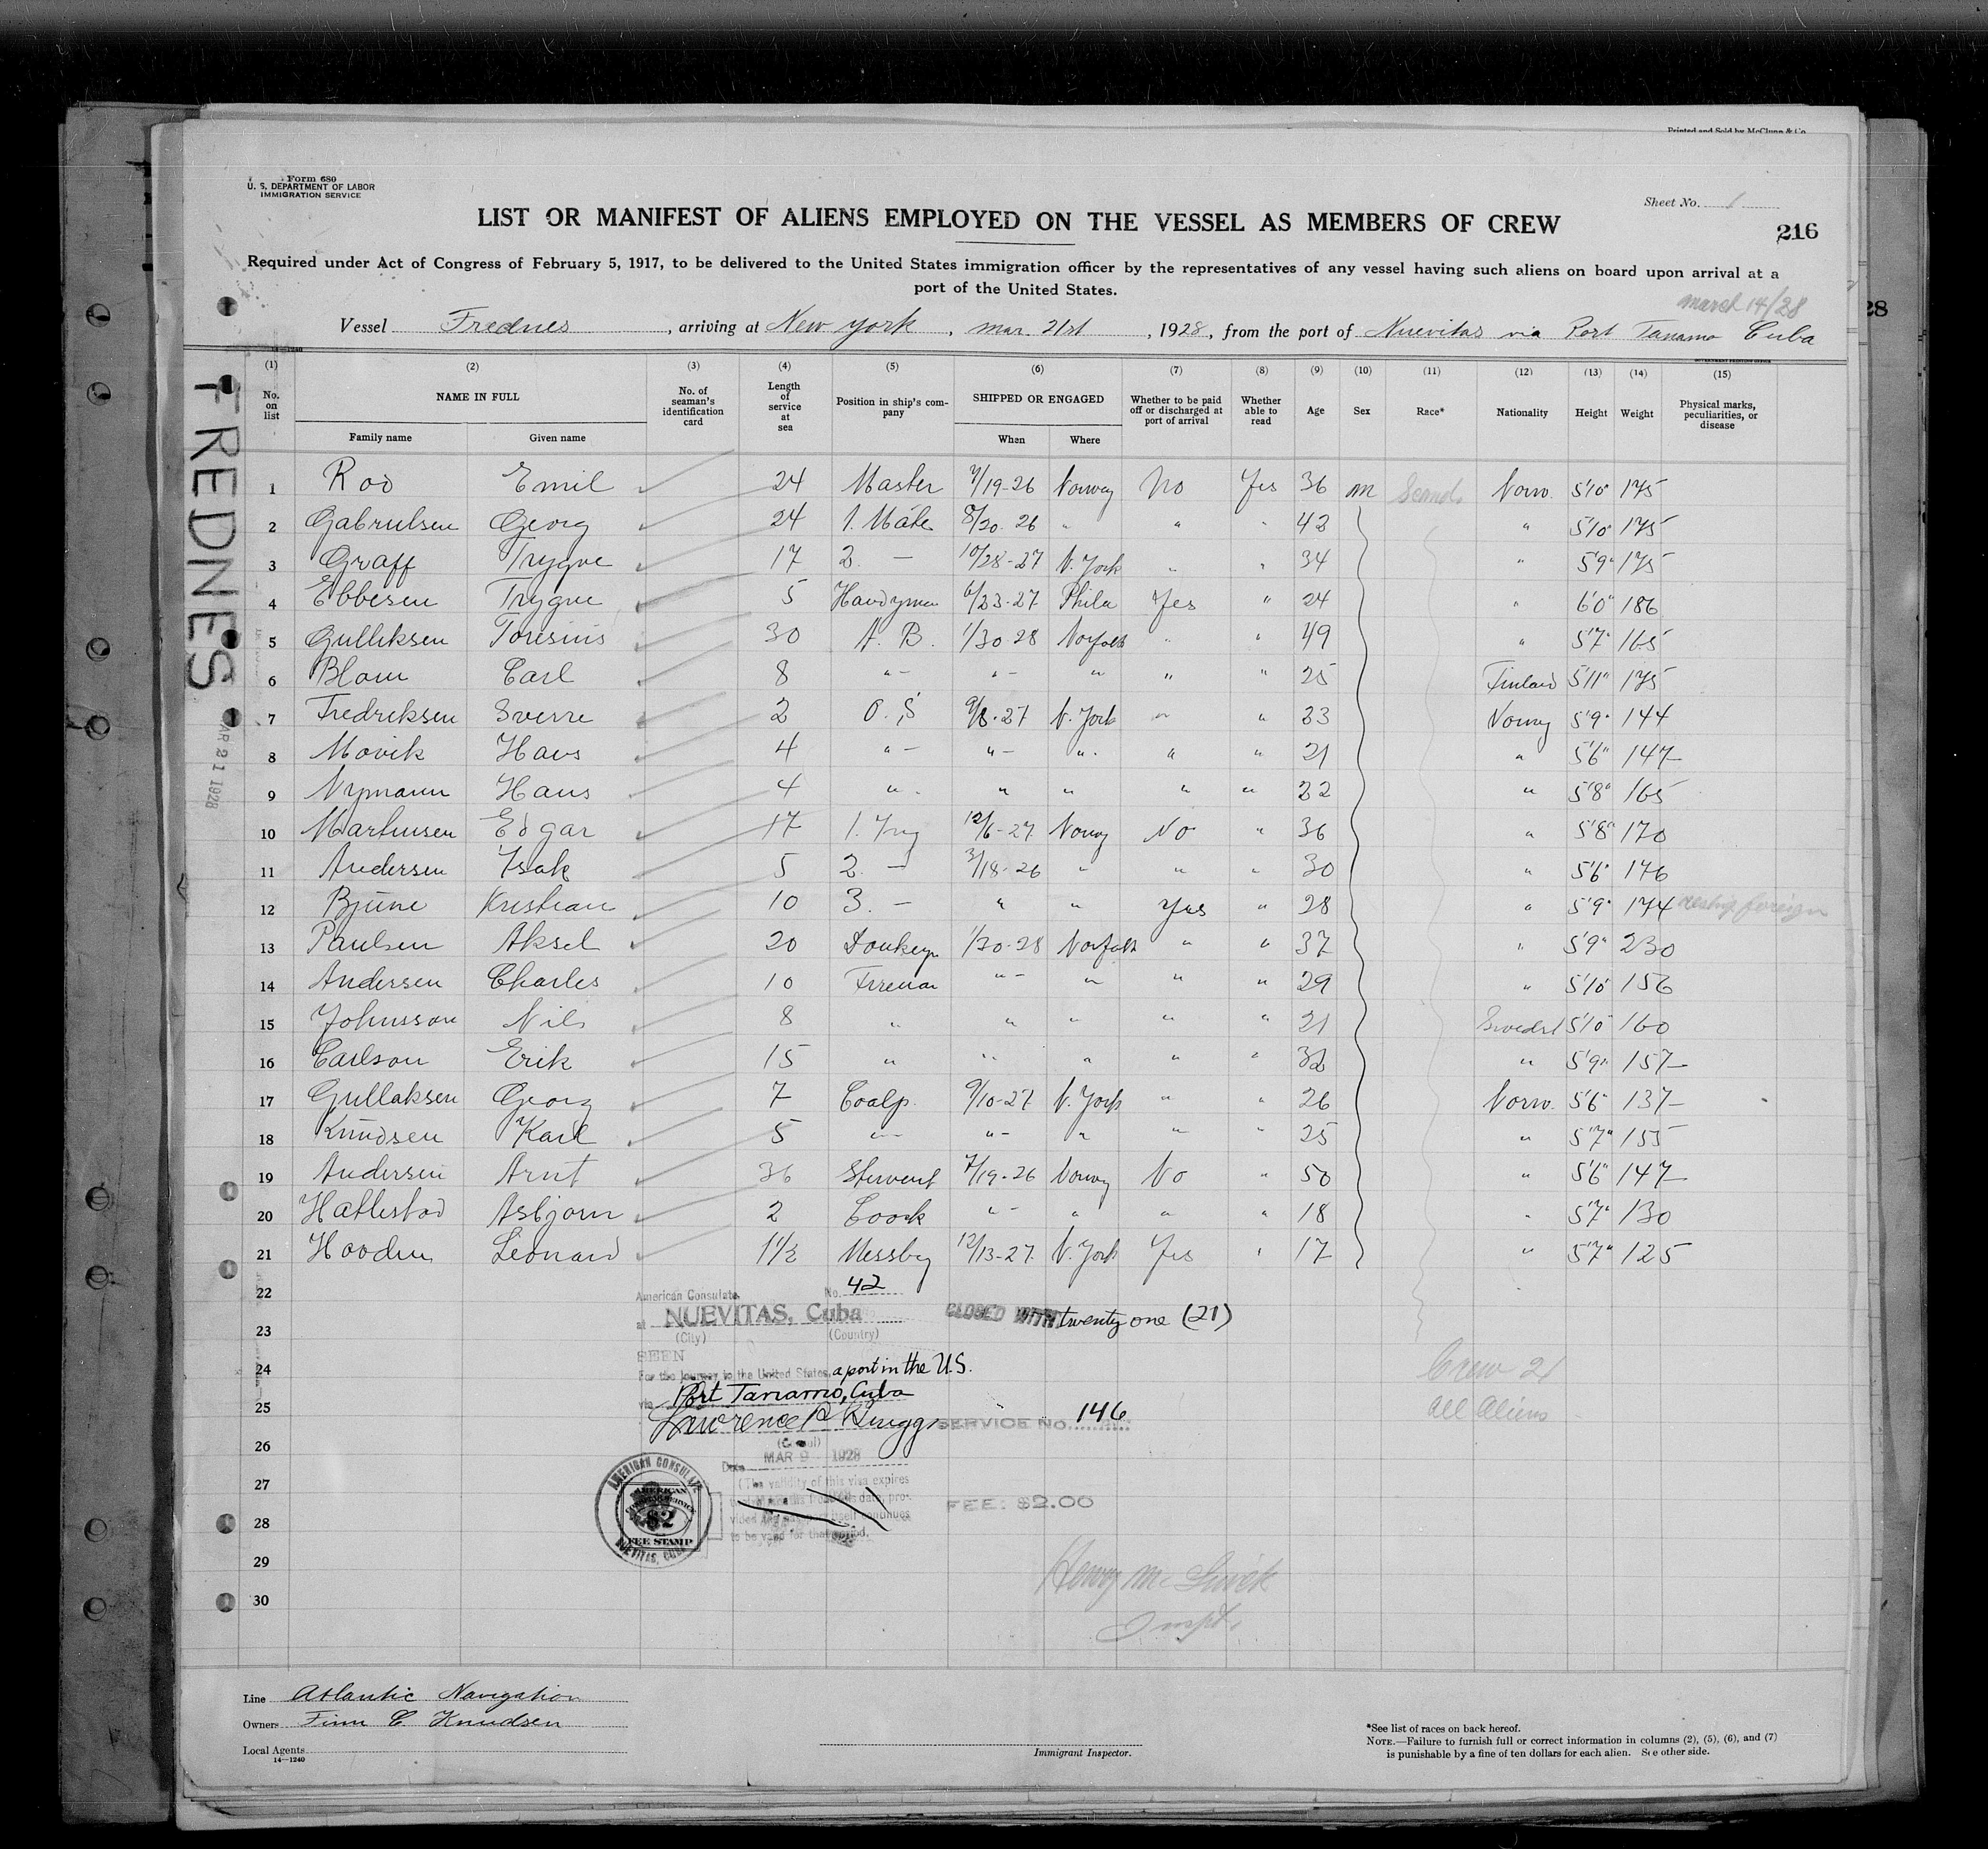 Printed and Sold by McClunn & Co
Form 680
U. S. DEPARTMENT OF LABOR
IMMIGRATION SERVICE
Sheet No. 1
LIST OR MANIFEST OF ALIENS EMPLOYED ON THE VESSEL AS MEMBERS OF CREW
216
Required under Act of Congress of February 5, 1917, to be delivered to the United States immigration officer by the representatives of any vessel having such aliens on board upon arrival at a
port of the United States.
march 14/28
28
Vessel Frednes, arriving at New York, mar. 21st, 1928, from the port of Nuevitas via Port Tanamo Cuba
(1) (2) (3) (4) (5) (6) (7) (8) (9) (10) (11) (12) (13) (14) (15)
No. on list NAME IN FULL Family name Given name No. of seaman's identification card Length of service at sea Position in ship's company SHIPPED OR ENGAGED When Where Whether to be paid off or discharged at port of arrival Whether able to read Age Sex Race* Nationality Height Weight Physical marks, peculiarities, or disease
FREDNES
MAR 21 1928
1 Rod Emil 24 Master 7/19-26 Norway No Yes 36 m Scand. Norw. 5'10" 175
2 Gabrielsen Georg 24 1. Mate 8/20. 26 " " " 42 " 5'10" 175
3 Graff Trygve 17 2. — 10/28-27 N. York " " 34 " 5'9" 175
4 Ebbesen Trygve 5 Handyman 6/23-27 Phila Yes " 24 " 6'0" 186
5 Gulliksen Toresius 30 A. B. 1/30 28 Norfolk " " 49 " 5'7" 165
6 Blom Carl 8 "- "- " " " 25 Finland 5'11" 175
7 Fredriksen Sverre 2 O. S 9/8-27 N. York " " 23 Norway 5'9" 144
8 Movik Hans 4 "- "- " " " 21 " 5'6" 147
9 Nymann Hans 4 " " " " " 22 " 5'8" 165
10 Marthinsen Edgar 17 1. Ing 12/6-27 Norway No " 36 " 5'8" 170
11 Andersen Isak 5 2. — 3/18-26 " " " 30 " 5'6" 176
12 Bjune Kristian 10 3. — " " Yes " 28 " 5'9" 174 reship foreign
13 Paulsen Aksel 20 Donkeyn 1/30-28 Norfolk " " 37 " 5'9" 230
14 Andersen Charles 10 Fireman "- " " " 29 " 5'10" 156
15 Johnsson Nils 8 " " " " " 21 5'10" 160
16 Carlson Erik 15 " " " " " 32 " 5'9" 157
17 Gullaksen Georg 7 Coalp. 9/10-27 N. York " " 26 Norw. 5'6" 137
18 Knudsen Karl 5 "- "- " " " 25 " 5'7" 155
19 Andersen Arnt 36 Stewart 7/19-26 Norway No " 50 " 5'6" 147
20 Hatlestad Asbjorn 2 Coock "- " " " 18 " 5'7" 130
21 Hooden Leonard 1 1/2 Messboy 12/13-27 N. York Yes " 17 " 5'7" 125
22
23
24
25
26
27
28
29
30
American Consulate, No. 42
at NUEVITAS, Cuba
(City) (Country)
CLOSED WITH twenty one (21)
SEEN
For the journey to the United States, a port in the U.S.
via Port Tanamo, Cuba
Lawrence P. Briggs
(Consul)
SERVICE No. 146
Date MAR 9 1928
(The validity of this visa expires
to be valid for that period.
AMERICAN CONSULATE
AMERICAN
$2
FEE STAMP
NUEVITAS, CUBA
FEE: $2.00
Crew 21
all aliens
Inspt.
Line Atlantic Navigation
Owners Finn C Knudsen
Local Agents
14—1240
Immigrant Inspector.
*See list of races on back hereof.
NOTE.—Failure to furnish full or correct information in columns (2), (5), (6), and (7)
is punishable by a fine of ten dollars for each alien. See other side.